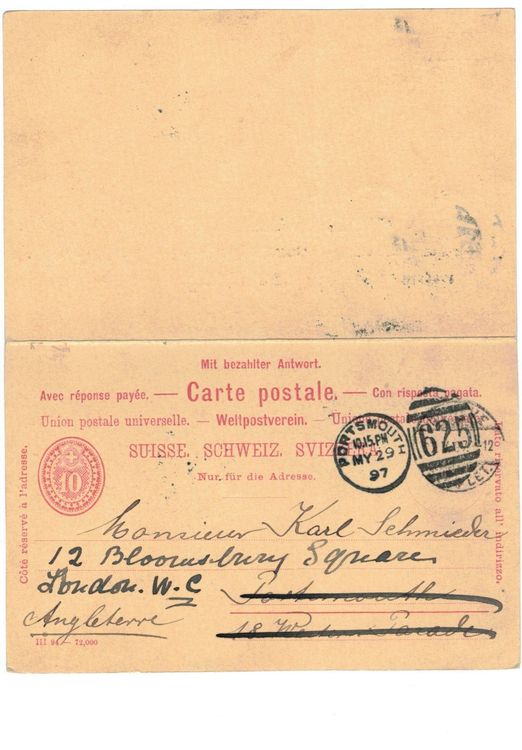 Mit bezahlter Antwort.
Avec réponse payée. — Carte postale. — Con risposta pagata.
Union postale universelle. — Weltpostverein. — Unione postale
SUISSE. SCHWEIZ. SVIZZERA.
Nur für die Adresse.
Côté réservé à l'adresse.
10
PORTSMOUTH
10.15.PM
MY 29
97
625
12
Lato riservato all' indirizzo.
Monsieur Karl Schmieder
12 Bloomsbury Square
London. W.C
Portsmouth
Angleterre
18 Western Parade
III 94. — 72,000